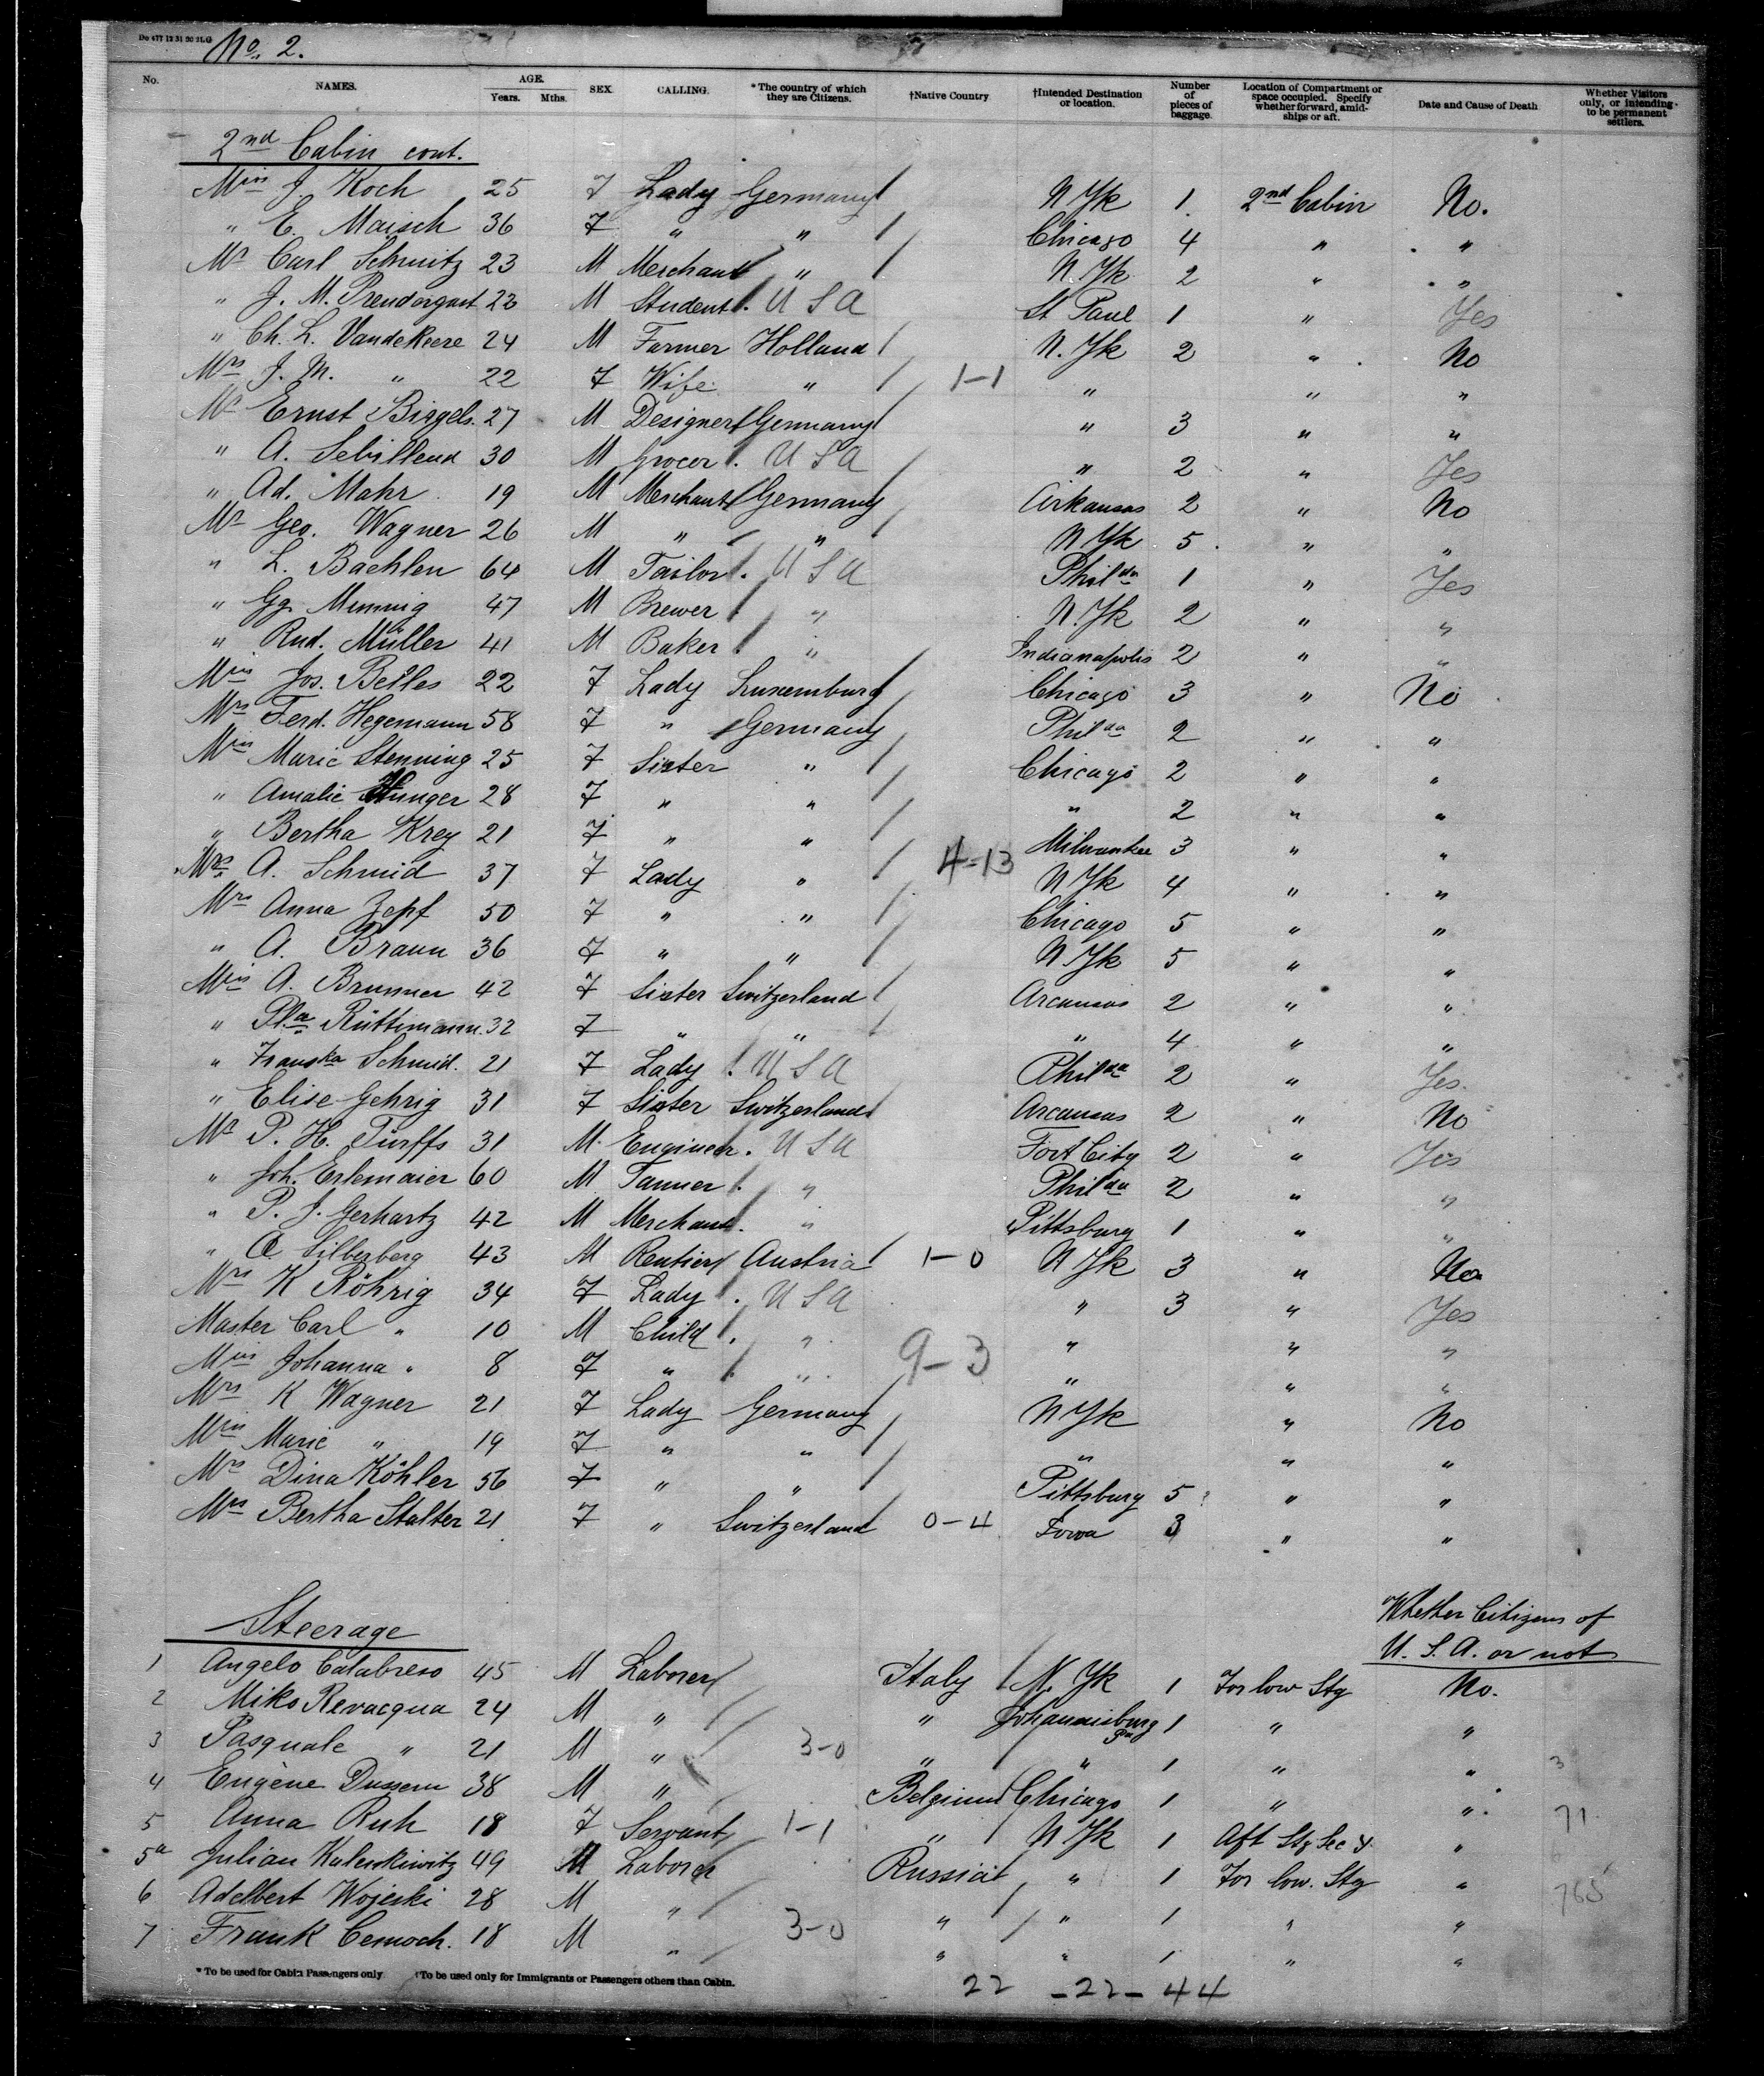 Do 477 12 31 90 2LG
No. 2.
No. NAMES. AGE. Years. Mths. SEX. CALLING. *The country of which they are Citizens. †Native Country †Intended Destination or location. Number of pieces of baggage. Location of Compartment or space occupied. Specify whether forward, amidships or aft. Date and Cause of Death Whether Visitors only, or intending to be permanent settlers.
2nd Cabin cont.
Miss J. Koch 25 F Lady Germany N. Yk 1 2nd Cabin No.
" E. Maisch 36 F " " Chicago 4 " "
Mr Carl Schmitz 23 M Merchant " N. Yk 2 " "
" J. M. Prendergast 22 M Student. U S A St Paul 1 " Yes
" Ch. L. Vandekeere 24 M Farmer Holland N. Yk 2 " No
Mrs J. M. " 22 F Wife " 1-1 " " "
Mr Ernst Biggels. 27 M Designer Germany " 3 " "
" A. 30 M Grocer. U S A " 2 " Yes
" Ad. Mahr 19 M Merchant Germany Arkansas 2 " No
Mr Geo. Wagner 26 M " " N. Yk 5 " "
" L. Baehlen 64 M Tailor. U S A Philda 1 " Yes
" Gg. Mimmig 47 M Brewer " N. Yk 2 " "
" Rud. Müller 41 M Baker " Indianapolis 2 " "
Miss Jos. Belles 22 F Lady Luxemburg Chicago 3 " No
Mrs Ferd. Hegemann 58 F " Germany Philda 2 " "
Miss Marie Stenning 25 F Sister " Chicago 2 " "
" Amalie Hunger 28 F " " " 2 " "
" Bertha Krey 21 F " " Milwaukee 3 " "
Mrs A. Schmid 37 F Lady " 4-13 N Yk 4 " "
Mrs Anna Zepf 50 F " " Chicago 5 " "
" A. Braun 36 F " " N. Yk 5 " "
Miss A. Brunner 42 F Sister Switzerland Arcansas 2 " "
" Pl.a Rüttimann. 32 F " " " 4 " "
" Franska Schmid. 21 F Lady. U S A Philda 2 " Yes.
" Elise Gehrig 31 F Sister Switzerland Arcansas 2 " No
Mr P. H. Pürffs 31 M. Engineer. U S A Fort City 2 " Yes
" Joh. Erlemaier 60 M Tanner. " Philda 2 " "
" P. J. Gerhartz 42 M Merchant. " Pittsburg 1 " "
" A. Silberberg 43 M Rentier Austria 1-0 N Yk 3 " No
Mrs K Röhrig 34 F Lady. U S A " 3 " Yes
Master Carl " 10 M Child. " " " "
Miss Johanna " 8 F " " 9-3 " " "
Mrs K Wagner 21 F Lady Germany N Yk " No
Miss Marie " 19 F " " " " "
Mrs Dina Köhler 56 F " " Pittsburg 5 " "
Mrs Bertha Stalter 21 F " Switzerland 0-4 Iowa 3 " "
Steerage
Whether Citizens of
U. S. A. or not
1 Angelo Calabreso 45 M Laborer Italy N. Yk 1 For low Stg No.
2 Miko Revacqua 24 M " " Johannisburg Pa 1 " "
3 Pasquale " 21 M " 3-0 " " 1 " " 3
4 Eugène Dussern 38 M " Belgium Chicago 1 " " 71
5 Anna Ruh 18 F Servant 1-1 " N Yk 1 Aft Stg Sec 4 "
5a Julian Kulenkiwitz 49 M Laborer Russia " 1 For low. Stg " 765
6 Adelbert Wojeiski 28 M " " " 1 " "
7 Frank Cernoch. 18 M " 3-0 " " 1 " "
* To be used for Cabin Passengers only †To be used only for Immigrants or Passengers others than Cabin.
22 - 22 - 44